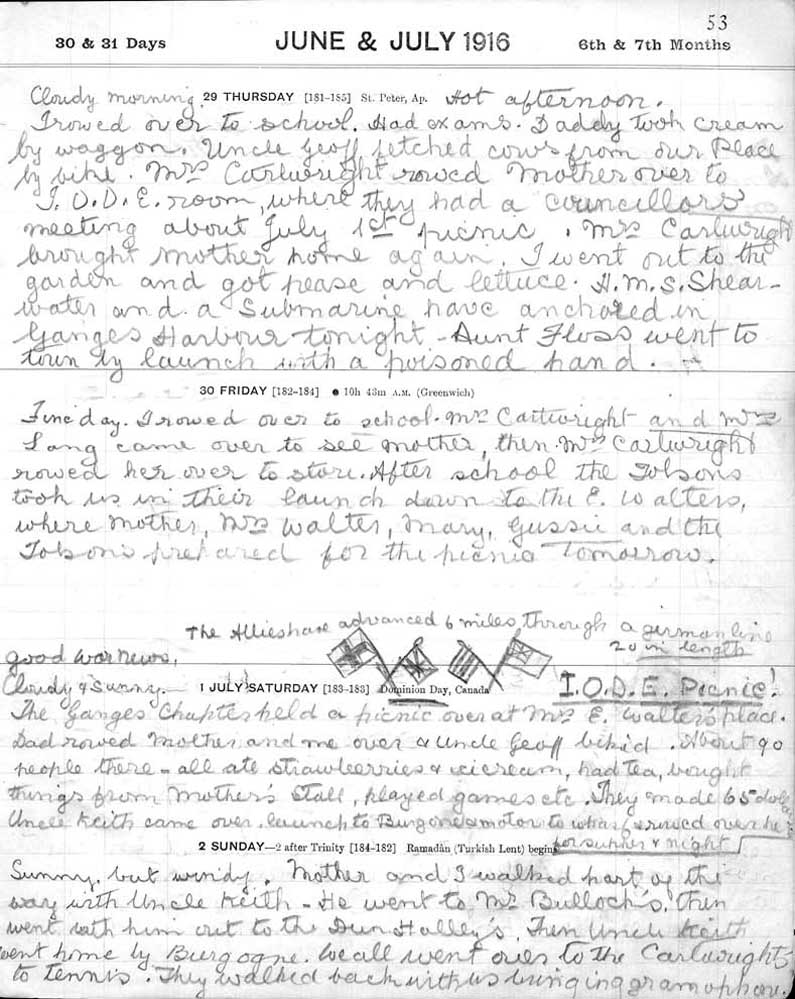 53
30 & 31 Days JUNE & JULY 1916 6th & 7th Months
Cloudy morning. 29 THURSDAY [181-185] St. Peter, Ap. Hot afternoon.
I rowed over to school. Had exams. Daddy took cream
by waggon. Uncle Geoff fetched cows from our Place
by bike. Mrs Cartwright rowed Mother over to
I.O.D.E. room, where they had a councillors
meeting about July 1st picnic. Mrs Cartwright
brought Mother home again. I went out to the
garden and got pease and lettuce. H.M.S. Shear-
water and a Submarine have anchored in
Ganges Harbour tonight - Aunt Floss went to
town by launch with a poisoned hand.
30 FRIDAY [182-184] ● 10h 43m A.M. (Greenwich)
Fine day. I rowed over to school. Mrs Cartwright and Mrs
Lang came over to see mother, then Mrs Cartwright
rowed her over to store. After school the Tolsons
took us in their launch down to the E. Walters,
where Mother, Mrs Walter, Mary, Gussie and the
Tolsons prepared for the picnic Tomorrow.
The Allies have advanced 6 miles, through a german line
20 in length
good war news.
Cloudy & Sunny. 1 JULY SATURDAY [183-183] Dominion Day, Canada I.O.D.E. Picnic!
The Ganges Chapter held a picnic over at Mrs E. Walter's place.
Dad rowed Mother and me over & Uncle Geoff biked. About 90
people there - all ate strawberries & icicream, had tea, bought
things from Mother's Stall, played games etc. They made 65
Uncle Keith came over. launch to Burgoynes motor to rowed over he
2 SUNDAY—2 after Trinity [184-182] Ramadân (Turkish Lent) begins for supper & night
Sunny, but windy. Mother and I walked part of the
way with Uncle Keith - He went to Mr Bullock's, then
went with him out to the Then Uncle Keith
went home by Burgoyne. We all went over to the Cartwrights
to tennis. They walked back with us bringing gramophone.